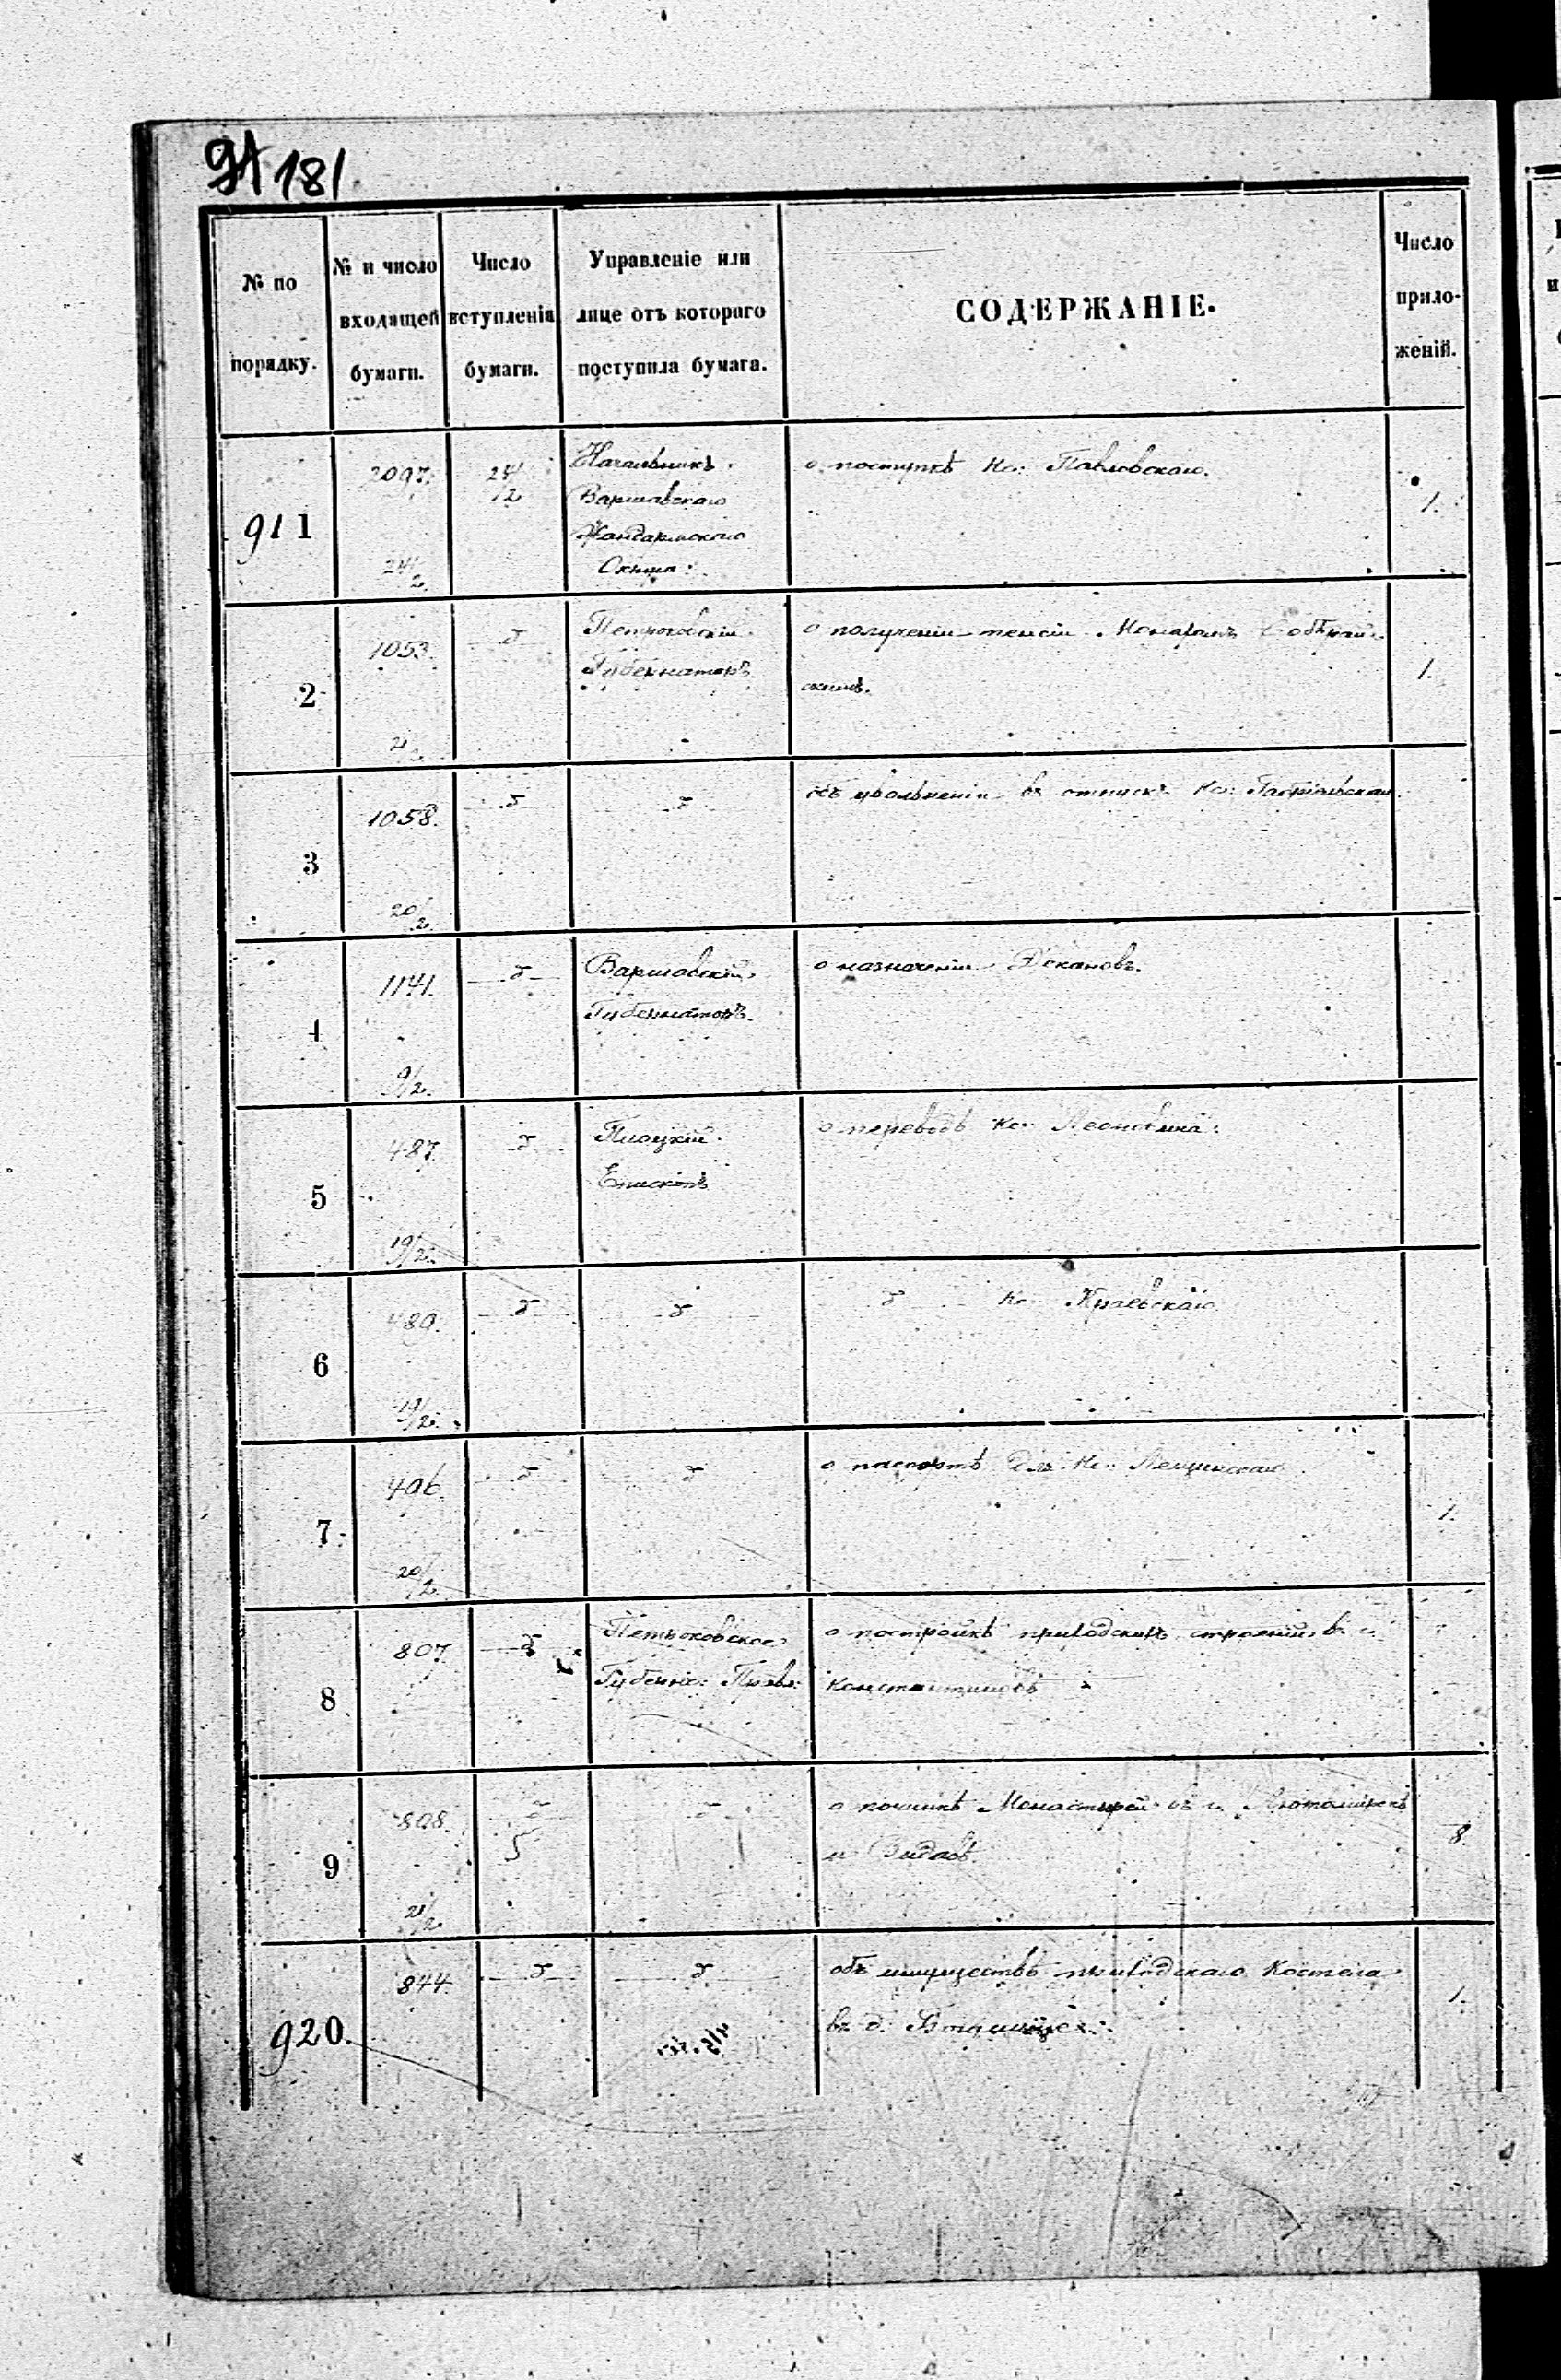 181
№ по порядку.
№ и число входящей бумаги.
Число вступленія бумаги.
Управленіе или лице отъ котораго поступила бумага.
СОДЕРЖАНІЕ.
Число приложеній.
911
2097.
24/2
24/2
Начальникъ
Варшавскаго
Жандармскаго
Округа:
о поступкѣ Кс: Павловскаго.
1.
2
1053.
Петроковскій
Губернаторъ
о полученіи пенсіи Монахомъ
1.
3
1058.
20/2
объ увольненіи въ отпускъ Кс:
4
1141.
9/2.
Варшавскій
Губернаторъ.
о назначеніи Декановъ.
5
487.
19/2.
Плоцкій
Епископъ
о переводѣ Кс:
6
489.
19/2.
Кс: Краевскаго
7
496.
20/2.
о паспортѣ для Кс: Лещинскаго
1.
8
807.
Петроковское
Губерн: Правл:
о постройкѣ приходскихъ строеній въ
Константиновѣ
9
808.
21/2
о починкѣ Монастырей въ г. Лютомирскѣ
и Видавѣ.
8.
920.
844.
объ имуществѣ приходскаго Костела
въ д.
1.